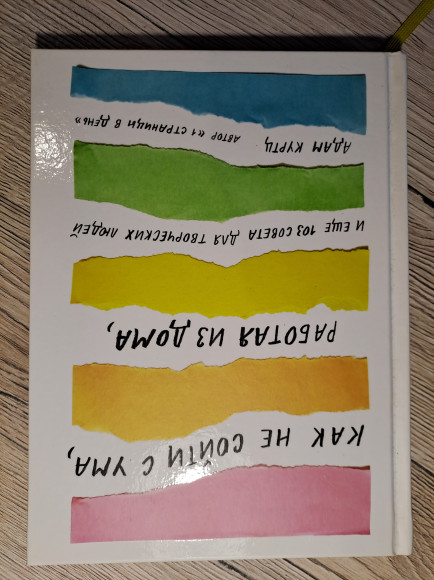 КАК НЕ СОЙТИ С УМА,
РАБОТАЯ ИЗ ДОМА,
И ЕЩЕ 103 СОВЕТА ДЛЯ ТВОРЧЕСКИХ ЛЮДЕЙ
АДАМ КУРТЦ
АВТОР «1 СТРАНИЦЫ В ДЕНЬ»